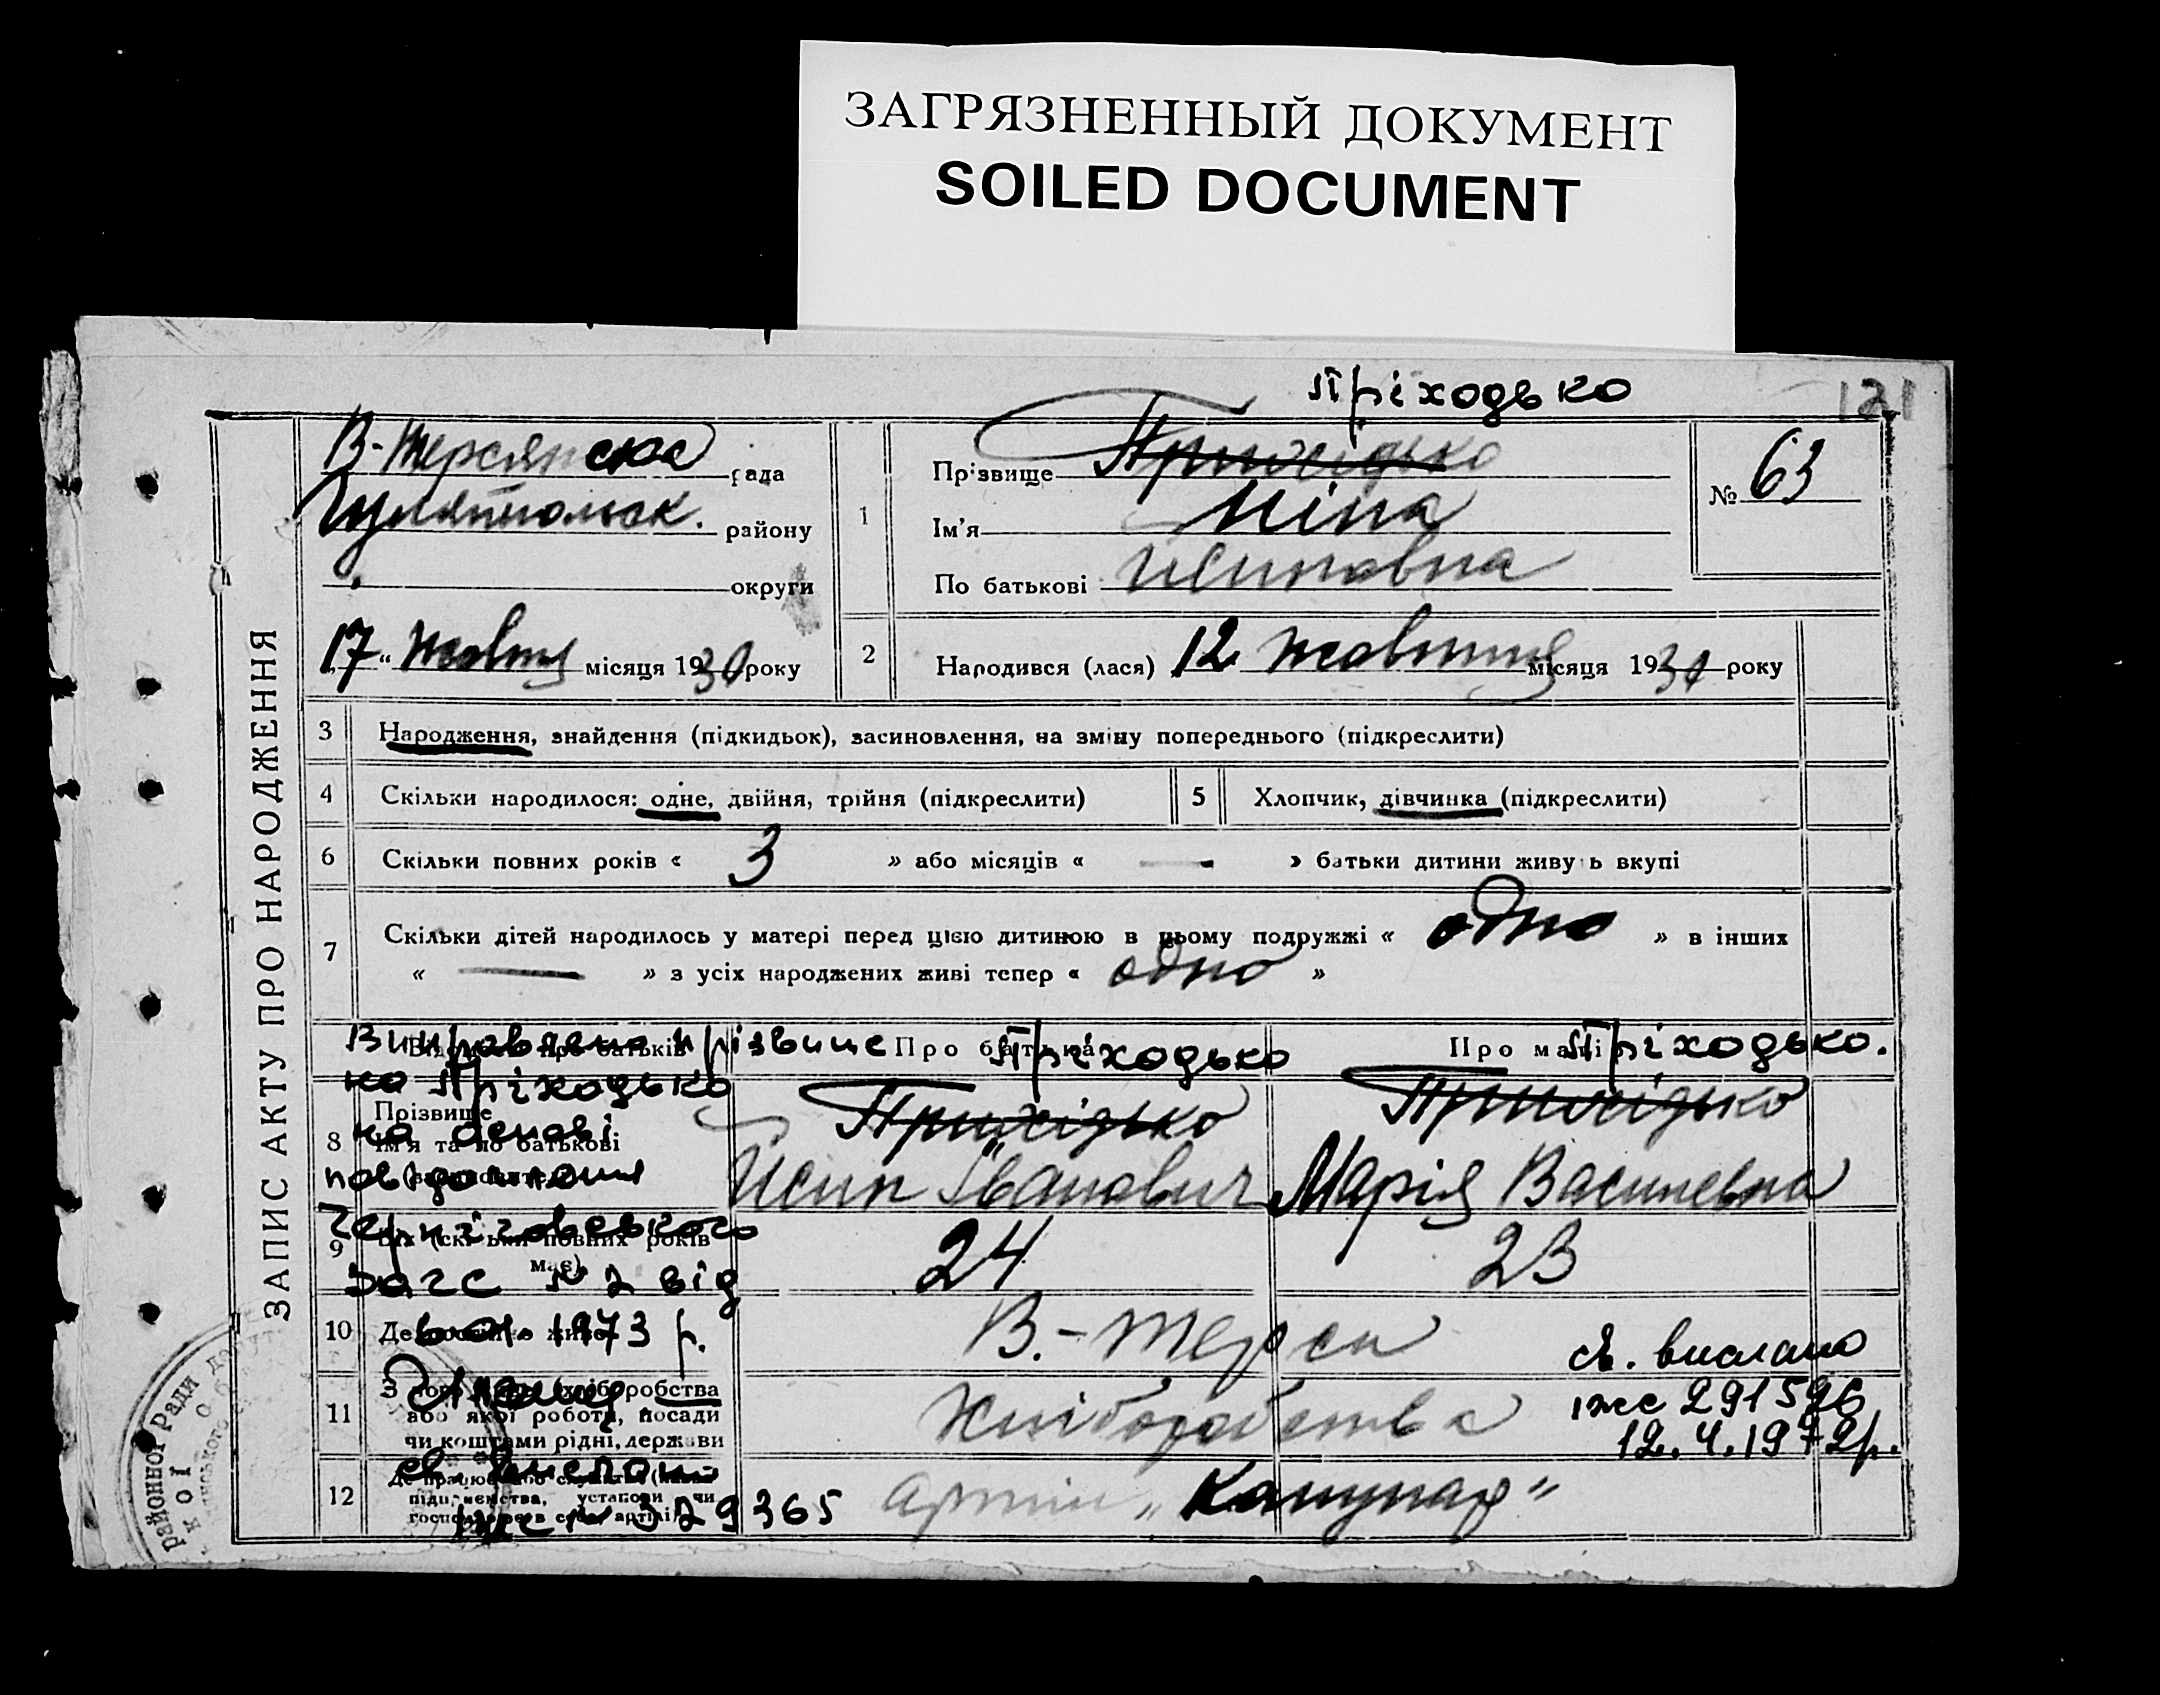 ЗАГРЯЗНЕННЫЙ ДОКУМЕНТ
SOILED DOCUMENT
Пріходько
121
В-Терсянська рада
Гуляйпольськ. району
округи
17 " жовтня місяця 1931 року
1
Прізвище Прихідько
Ім'я Ніна
По батькові Исиповна
№ 63
2
Народився (лася) 12 жовтня місяця 1931 року
ЗАПИС АКТУ ПРО НАРОДЖЕННЯ
3 Народження, знайдення (підкидьок), засиновлення, на зміну попереднього (підкреслити)
4 Скільки народилося: одне, двійня, трійня (підкреслити)
5 Хлопчик, дівчинка (підкреслити)
6 Скільки повних років « 3 » або місяців « — » батьки дитини живуть вкупі
7 Скільки дітей народилось у матері перед цією дитиною в цьому подружжі « одно » в інших
« — » з усіх народжених живі тепер « одно »
Виправлено прізвище
на Пріходько
на основі
повідомлення
Черніговського
загс № 2 від
1973 р.
Відомості про батьків
Про батька Пріходько
Про матір Пріходько.
8 Прізвище
ім'я та по батькові
Прихідько
Исип Іванович
Прихідько
Марія Василевна
9 Вік (скільки повних років має)
24
23
10
В.-Терси
св. вислано
іже 291596
12.4.1972р.
11
або якої роботи, посади
чи коштами рідні, держави
Хліборобства
12
підприємства, установи чи
артіль „Комунар"
329365
районної Ради